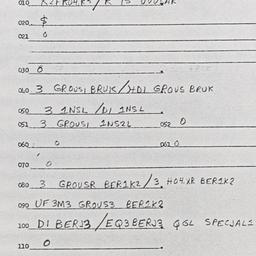 020. $
021 0
030 0
040 3 GROUSI BRUK/HDI GROUS BRUK
050 3 1NSL/DI 1NSL
051 3 GROUSI 1NS2L 052 0
060 0 061 0
070 0
080 3 GROUSR BER1K2/3. HO4.XR BER1K2
090 UF3M3 GROUS3 BER1K2
100 DI BERJ3/EQ3BERJ3 QGL SPECJAL1
110 0